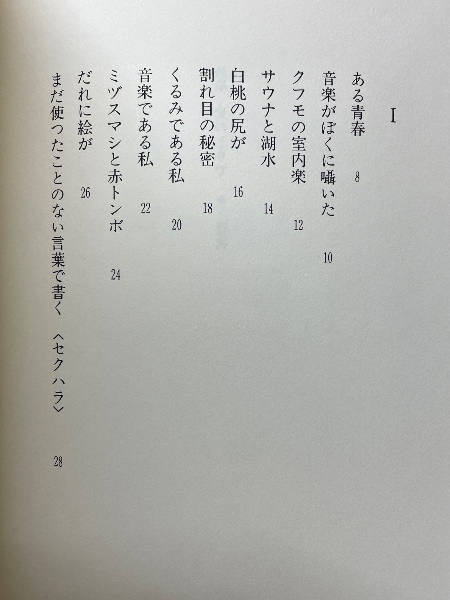 I
ある青春 8
音楽がぼくに囁いた 10
クフモの室内楽 12
サウナと湖水 14
白桃の尻が 16
割れ目の秘密 18
くるみである私 20
音楽である私 22
ミヅスマシと赤トンボ 24
だれに絵が 26
まだ使つたことのない言葉で書く〈セクハラ〉 28